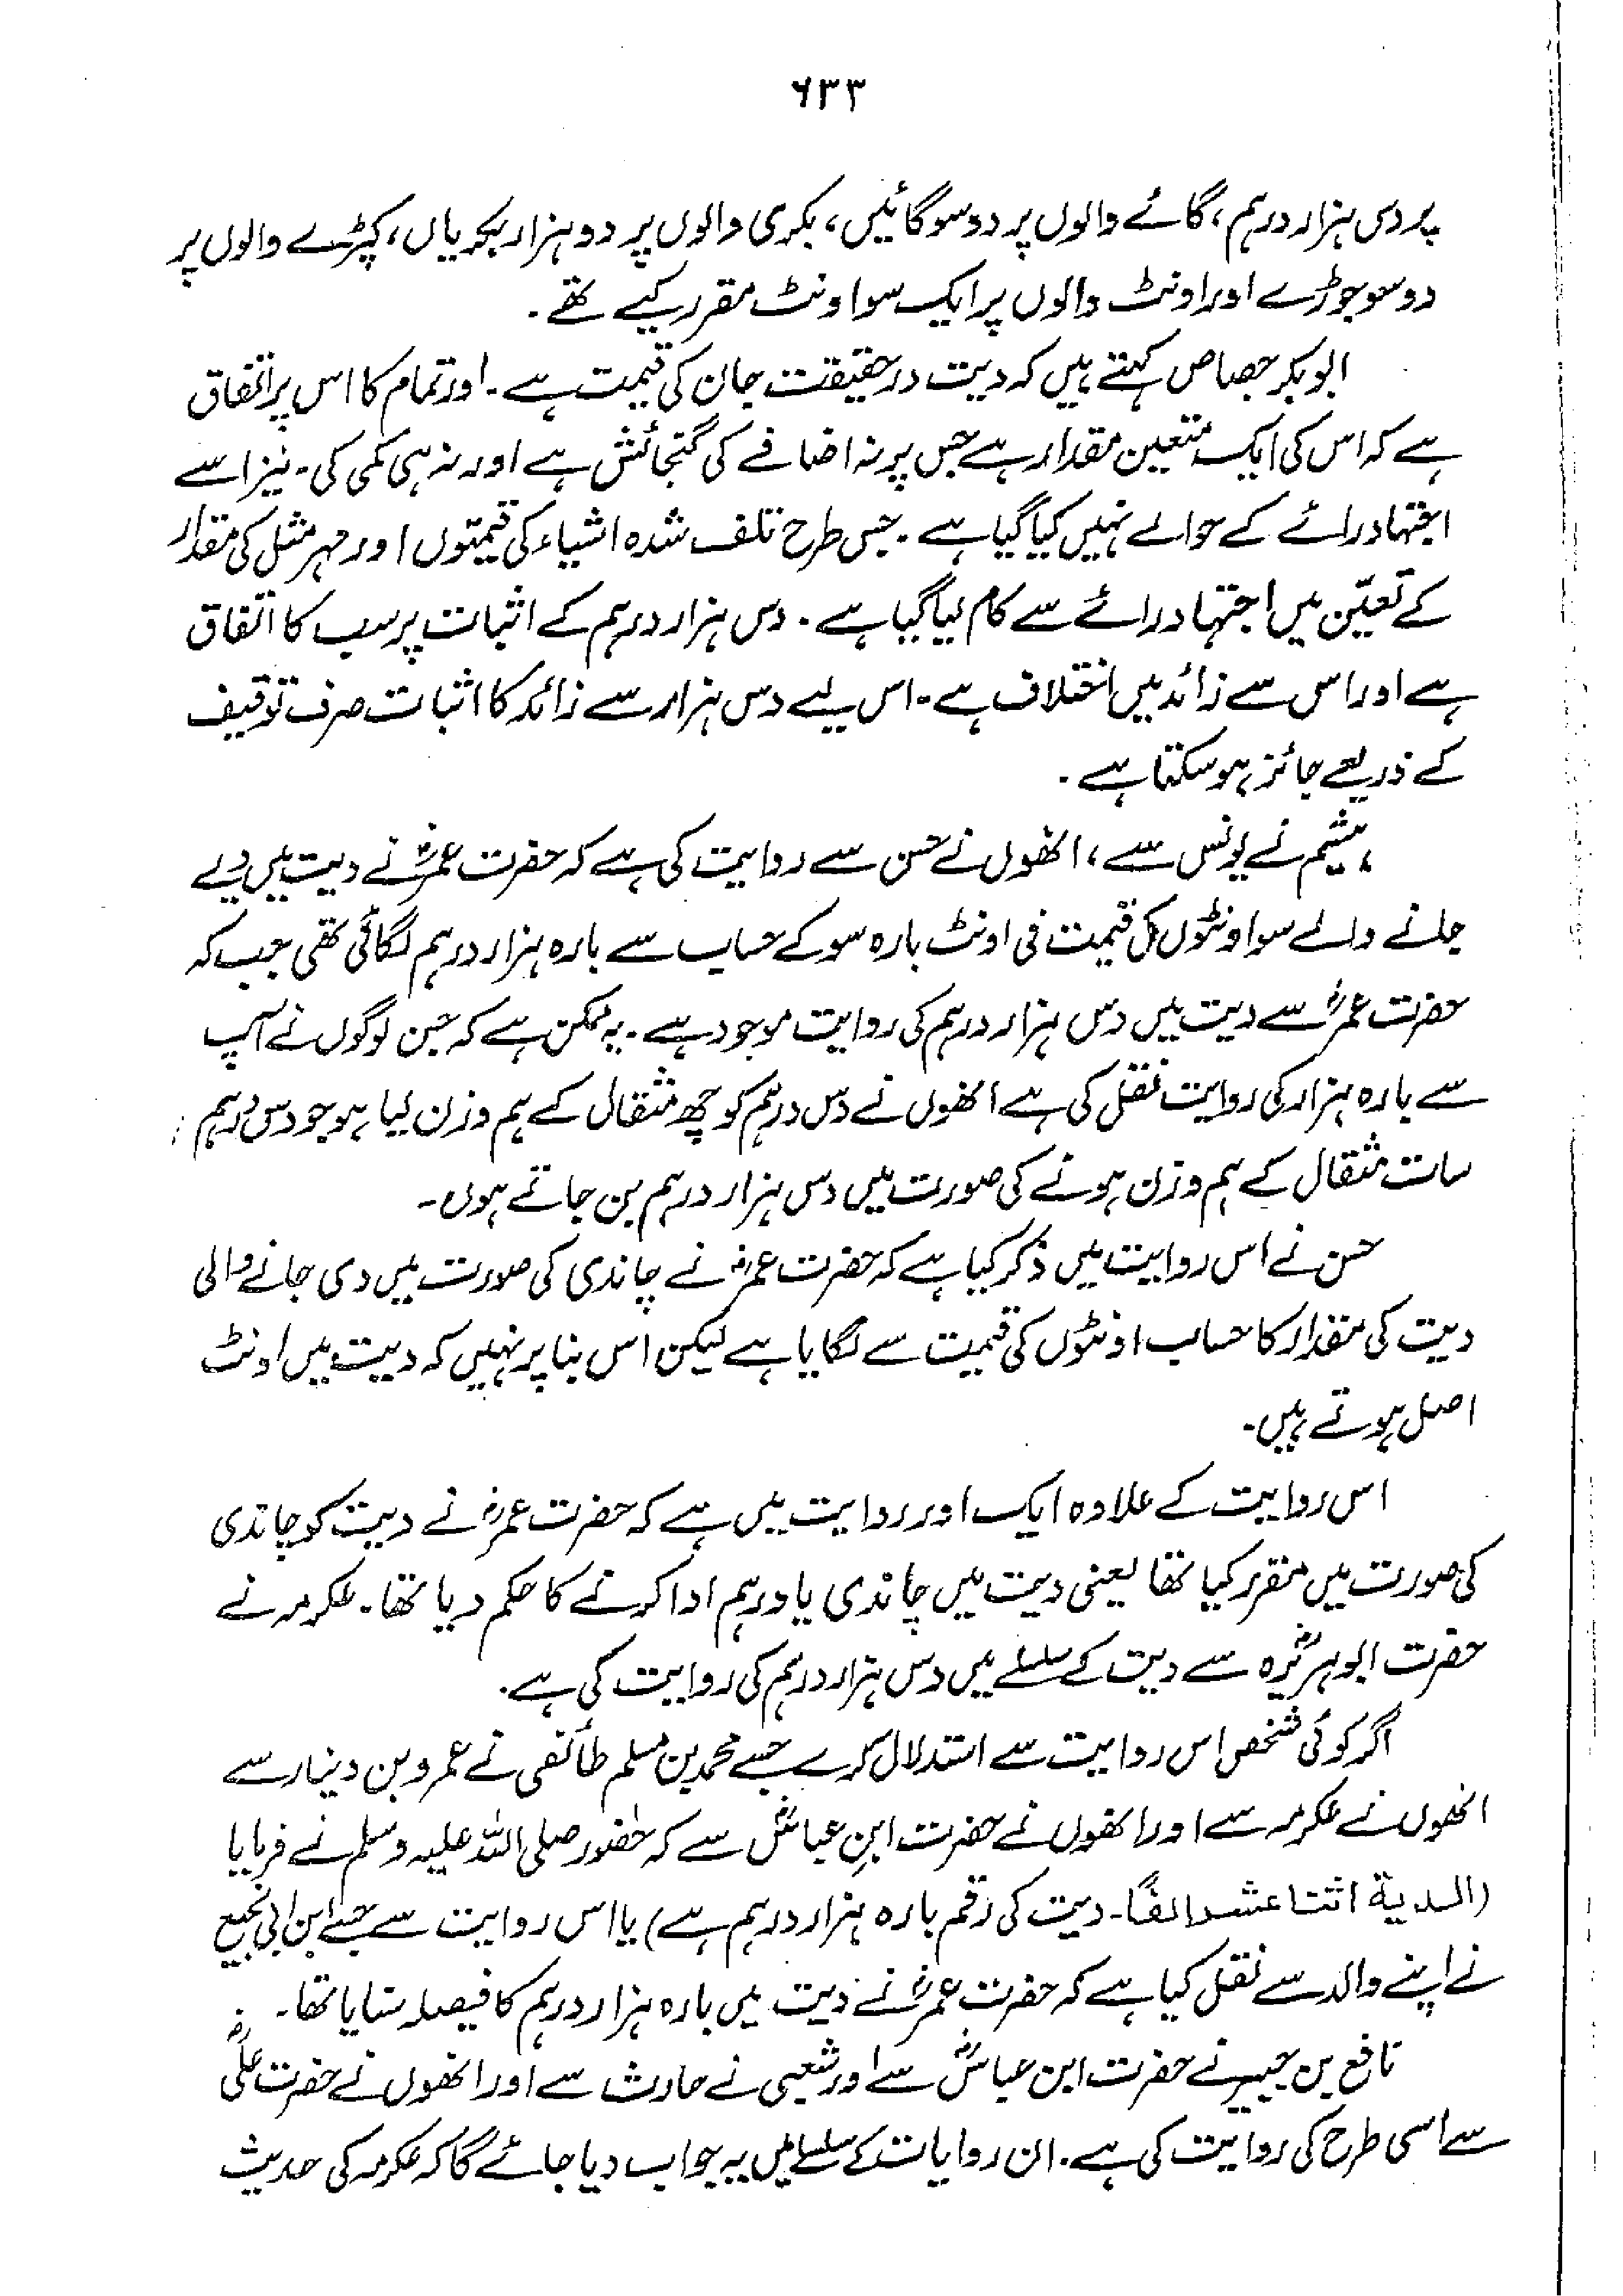 ۶۳۳
پر دس ہزار درہم، گائے والوں پر دو سو گائیں، بکری والوں پر دو ہزار بکریاں، کپڑے والوں پر
دو سو جوڑے اور اونٹ والوں پر ایک سو اونٹ مقرر کیے تھے۔
ابوبکر جصاص کہتے ہیں کہ دیت در حقیقت جان کی قیمت ہے۔ اور تمام کا اس پر اتفاق
ہے کہ اس کی ایک متعین مقدار ہے جس پر نہ اضافے کی گنجائش ہے اور نہ ہی کمی کی۔ نیز اسے
اجتہاد رائے کے حوالے نہیں کیا گیا ہے۔ جس طرح تلف شدہ اشیاء کی قیمتوں اور مہر مثل کی مقدار
کے تعیّن میں اجتہاد رائے سے کام لیا گیا ہے۔ دس ہزار درہم کے اثبات پر سب کا اتفاق
ہے اور اس سے زائد میں اختلاف ہے۔ اس لیے دس ہزار سے زائد کا اثبات صرف توقیف
کے ذریعے جائز ہو سکتا ہے۔
ہشیم نے یونس سے، انھوں نے حسن سے روایت کی ہے کہ حضرت عمرؓ نے دیت میں دیے
جانے والے سو اونٹوں کی قیمت فی اونٹ بارہ سو کے حساب سے بارہ ہزار درہم لگائی تھی جب کہ
حضرت عمرؓ سے دیت میں دس ہزار درہم کی روایت موجود ہے۔ یہ ممکن ہے کہ جن لوگوں نے آپ
سے بارہ ہزار کی روایت نقل کی ہے انھوں نے دس درہم کو چھ مثقال کے ہم وزن لیا ہو جو دس درہم
سات مثقال کے ہم وزن ہونے کی صورت میں دس ہزار درہم بن جاتے ہوں۔
حسن نے اس روایت میں ذکر کیا ہے کہ حضرت عمرؓ نے چاندی کی صورت میں دی جانے والی
دیت کی مقدار کا حساب اونٹوں کی قیمت سے لگایا ہے لیکن اس بنا پر نہیں کہ دیت میں اونٹ
اصل ہوتے ہیں۔
اس روایت کے علاوہ ایک اور روایت میں ہے کہ حضرت عمرؓ نے دیت کو چاندی
کی صورت میں مقرر کیا تھا یعنی دیت میں چاندی یا درہم ادا کرنے کا حکم دیا تھا۔ عکرمہ نے
حضرت ابوہرؓیرہ سے دیت کے سلسلے میں دس ہزار درہم کی روایت کی ہے۔
اگر کوئی شخص اس روایت سے استدلال کرے جسے محمد بن مسلم طائفی نے عمرو بن دینار سے
انھوں نے عکرمہ سے اور انھوں نے حضرت ابنِ عباسؓ سے کہ حضور صلی اللہ علیہ وسلم نے فرمایا
(الدیة اثنا عشر الفًا۔ دیت کی رقم بارہ ہزار درہم ہے) یا اس روایت سے جسے ابن ابی نجیع
نے اپنے والد سے نقل کیا ہے کہ حضرت عمرؓ نے دیت میں بارہ ہزار درہم کا فیصلہ سنایا تھا۔
نافع بن جبیر نے حضرت ابن عباسؓ سے اور شعبی نے حارث سے اور انھوں نے حضرت علیؓ
سے اسی طرح کی روایت کی ہے۔ ان روایات کے سلسلے میں یہ جواب دیا جائے گا کہ عکرمہ کی حدیث